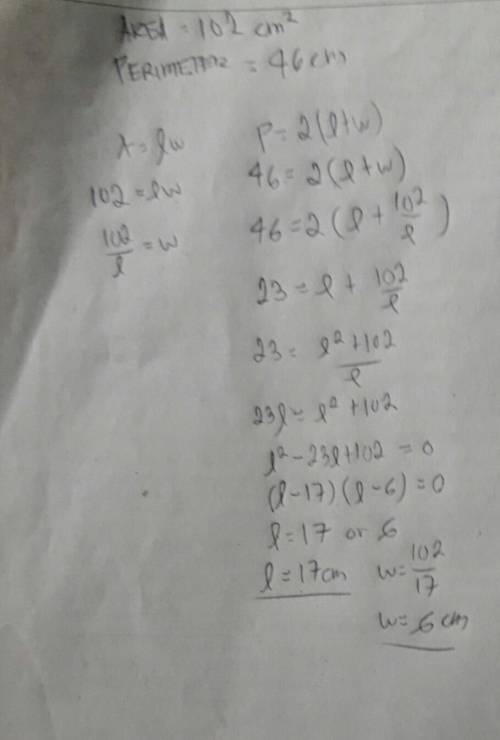 AREA = 102 cm²
PERIMETER = 46cm
A = lw
102 = lw
102/l = w
P = 2(l+w)
46 = 2(l+w)
46 = 2(l + 102/l)
23 = l + 102/l
23 = l²+102/l
23l = l² +102
l²-23l+102 = 0
(l-17)(l-6)=0
l=17 or 6
l=17cm w=102/17
w=6cm